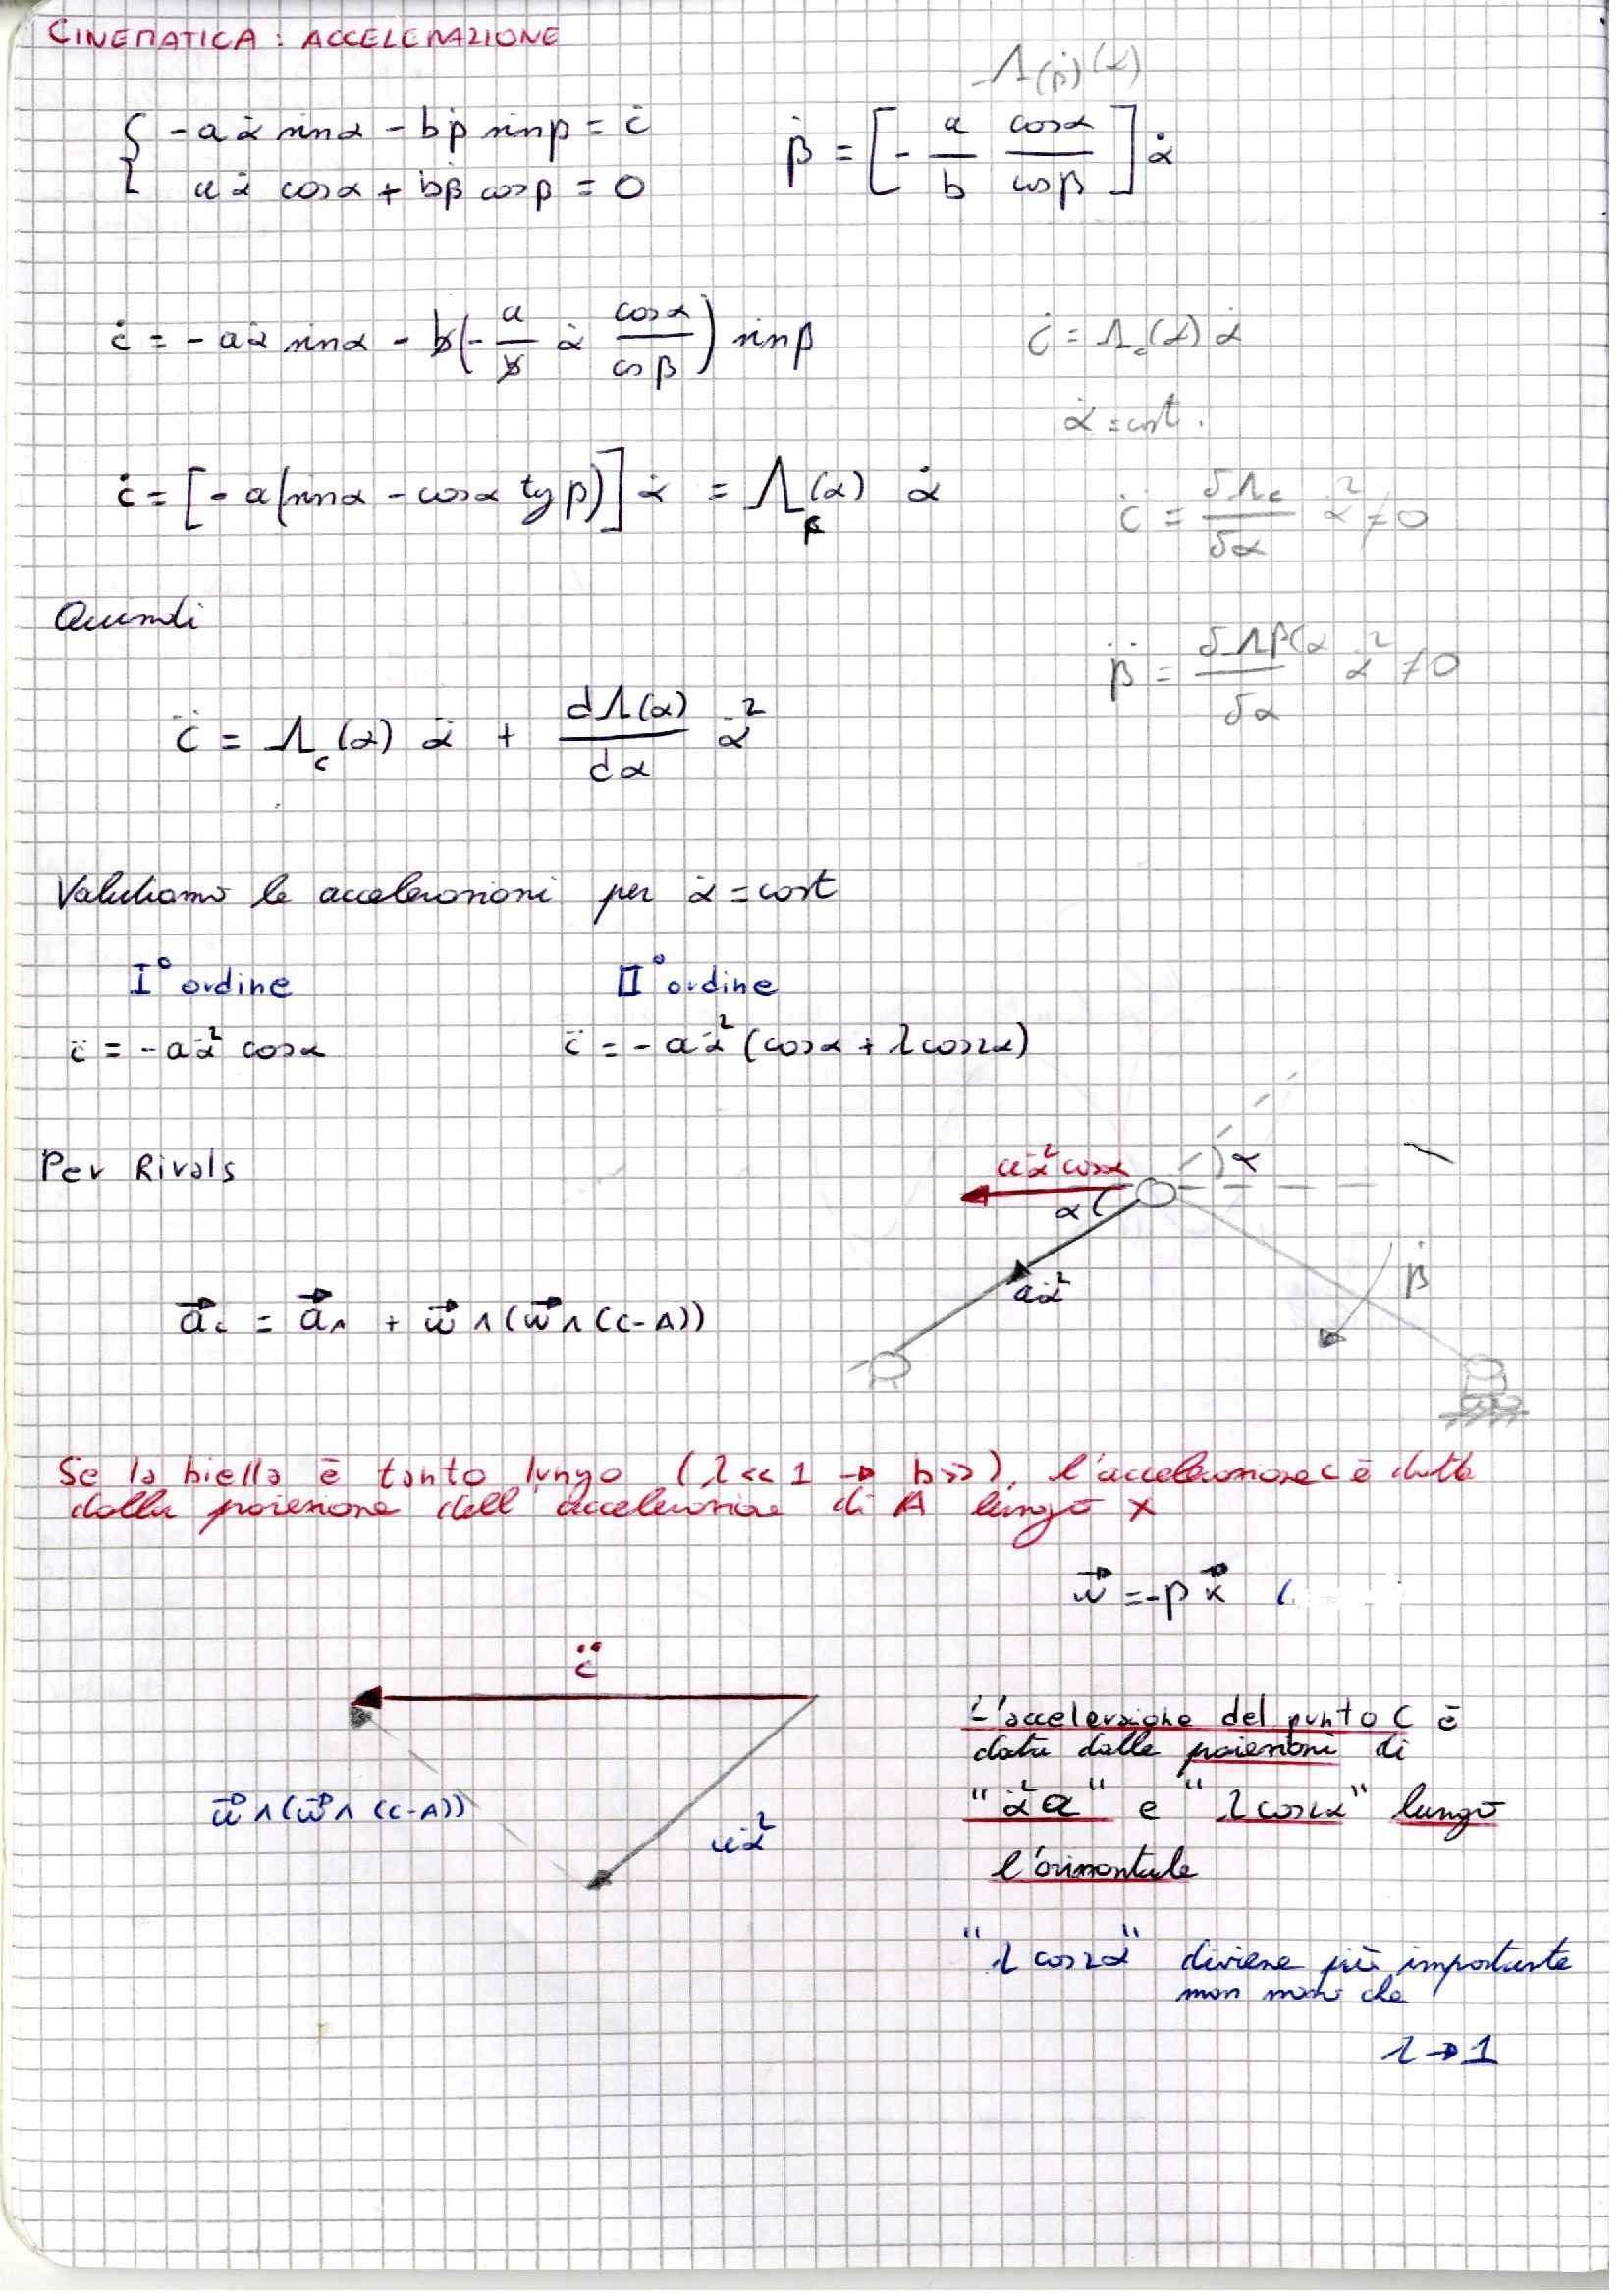 CINEMATICA: ACCELERAZIONE
Λ(β̇)(α)
{ -a α̇ sinα - b β̇ sinβ = ċ
a α̇ cosα + b β̇ cosβ = 0
β̇ = [ - a/b cosα/cosβ ] α̇
ċ = - a α̇ sinα - b(- a/b α̇ cosα/cosβ) sinβ
ċ = Λc(α) α̇
α̇ = cost.
ċ = [- a(sinα - cosα tgβ)] α̇ = Λc(α) α̇
c̈ = δΛc/δα α̇² ≠ 0
Quindi
β̈ = δΛβ(α/δα α̇² ≠ 0
c̈ = Λc(α) α̈ + dΛ(α)/dα α̇²
Valutiamo le accelerazioni per α̇ = cost
I° ordine II° ordine
c̈ = - a α̇² cosα c̈ = - a α̇² (cosα + λ cos2α)
Per Rivals
a α̇² cosα
α
α
a α̇²
β̇
a⃗c = a⃗A + ω⃗ ∧ (ω⃗ ∧ (C-A))
Se la biella è tanto lungo (λ << 1 → b>>), l'accelerazione c è data
dalla proiezione dell'accelerazione di A lungo x
ω⃗ = -β̇ k⃗ (
c̈
ω⃗ ∧ (ω⃗ ∧ (C-A))
a α̇²
L'accelerazione del punto C è
data dalle proiezioni di
"α̇² a" e "λ cos2α" lungo
l'orizzontale
"λ cos2α" diviene più importante
man mano che
λ → 1